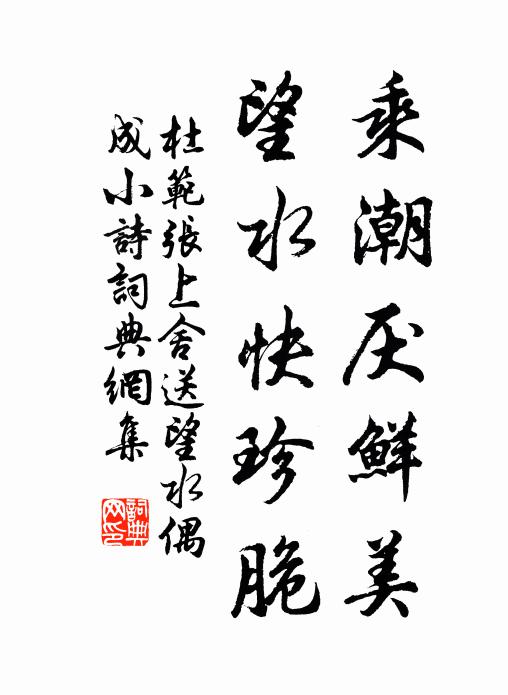 乘潮厌鮮美
望水快珍脆
杜範張上舍送望水偶
成小詩詞典網集
詞典
网印